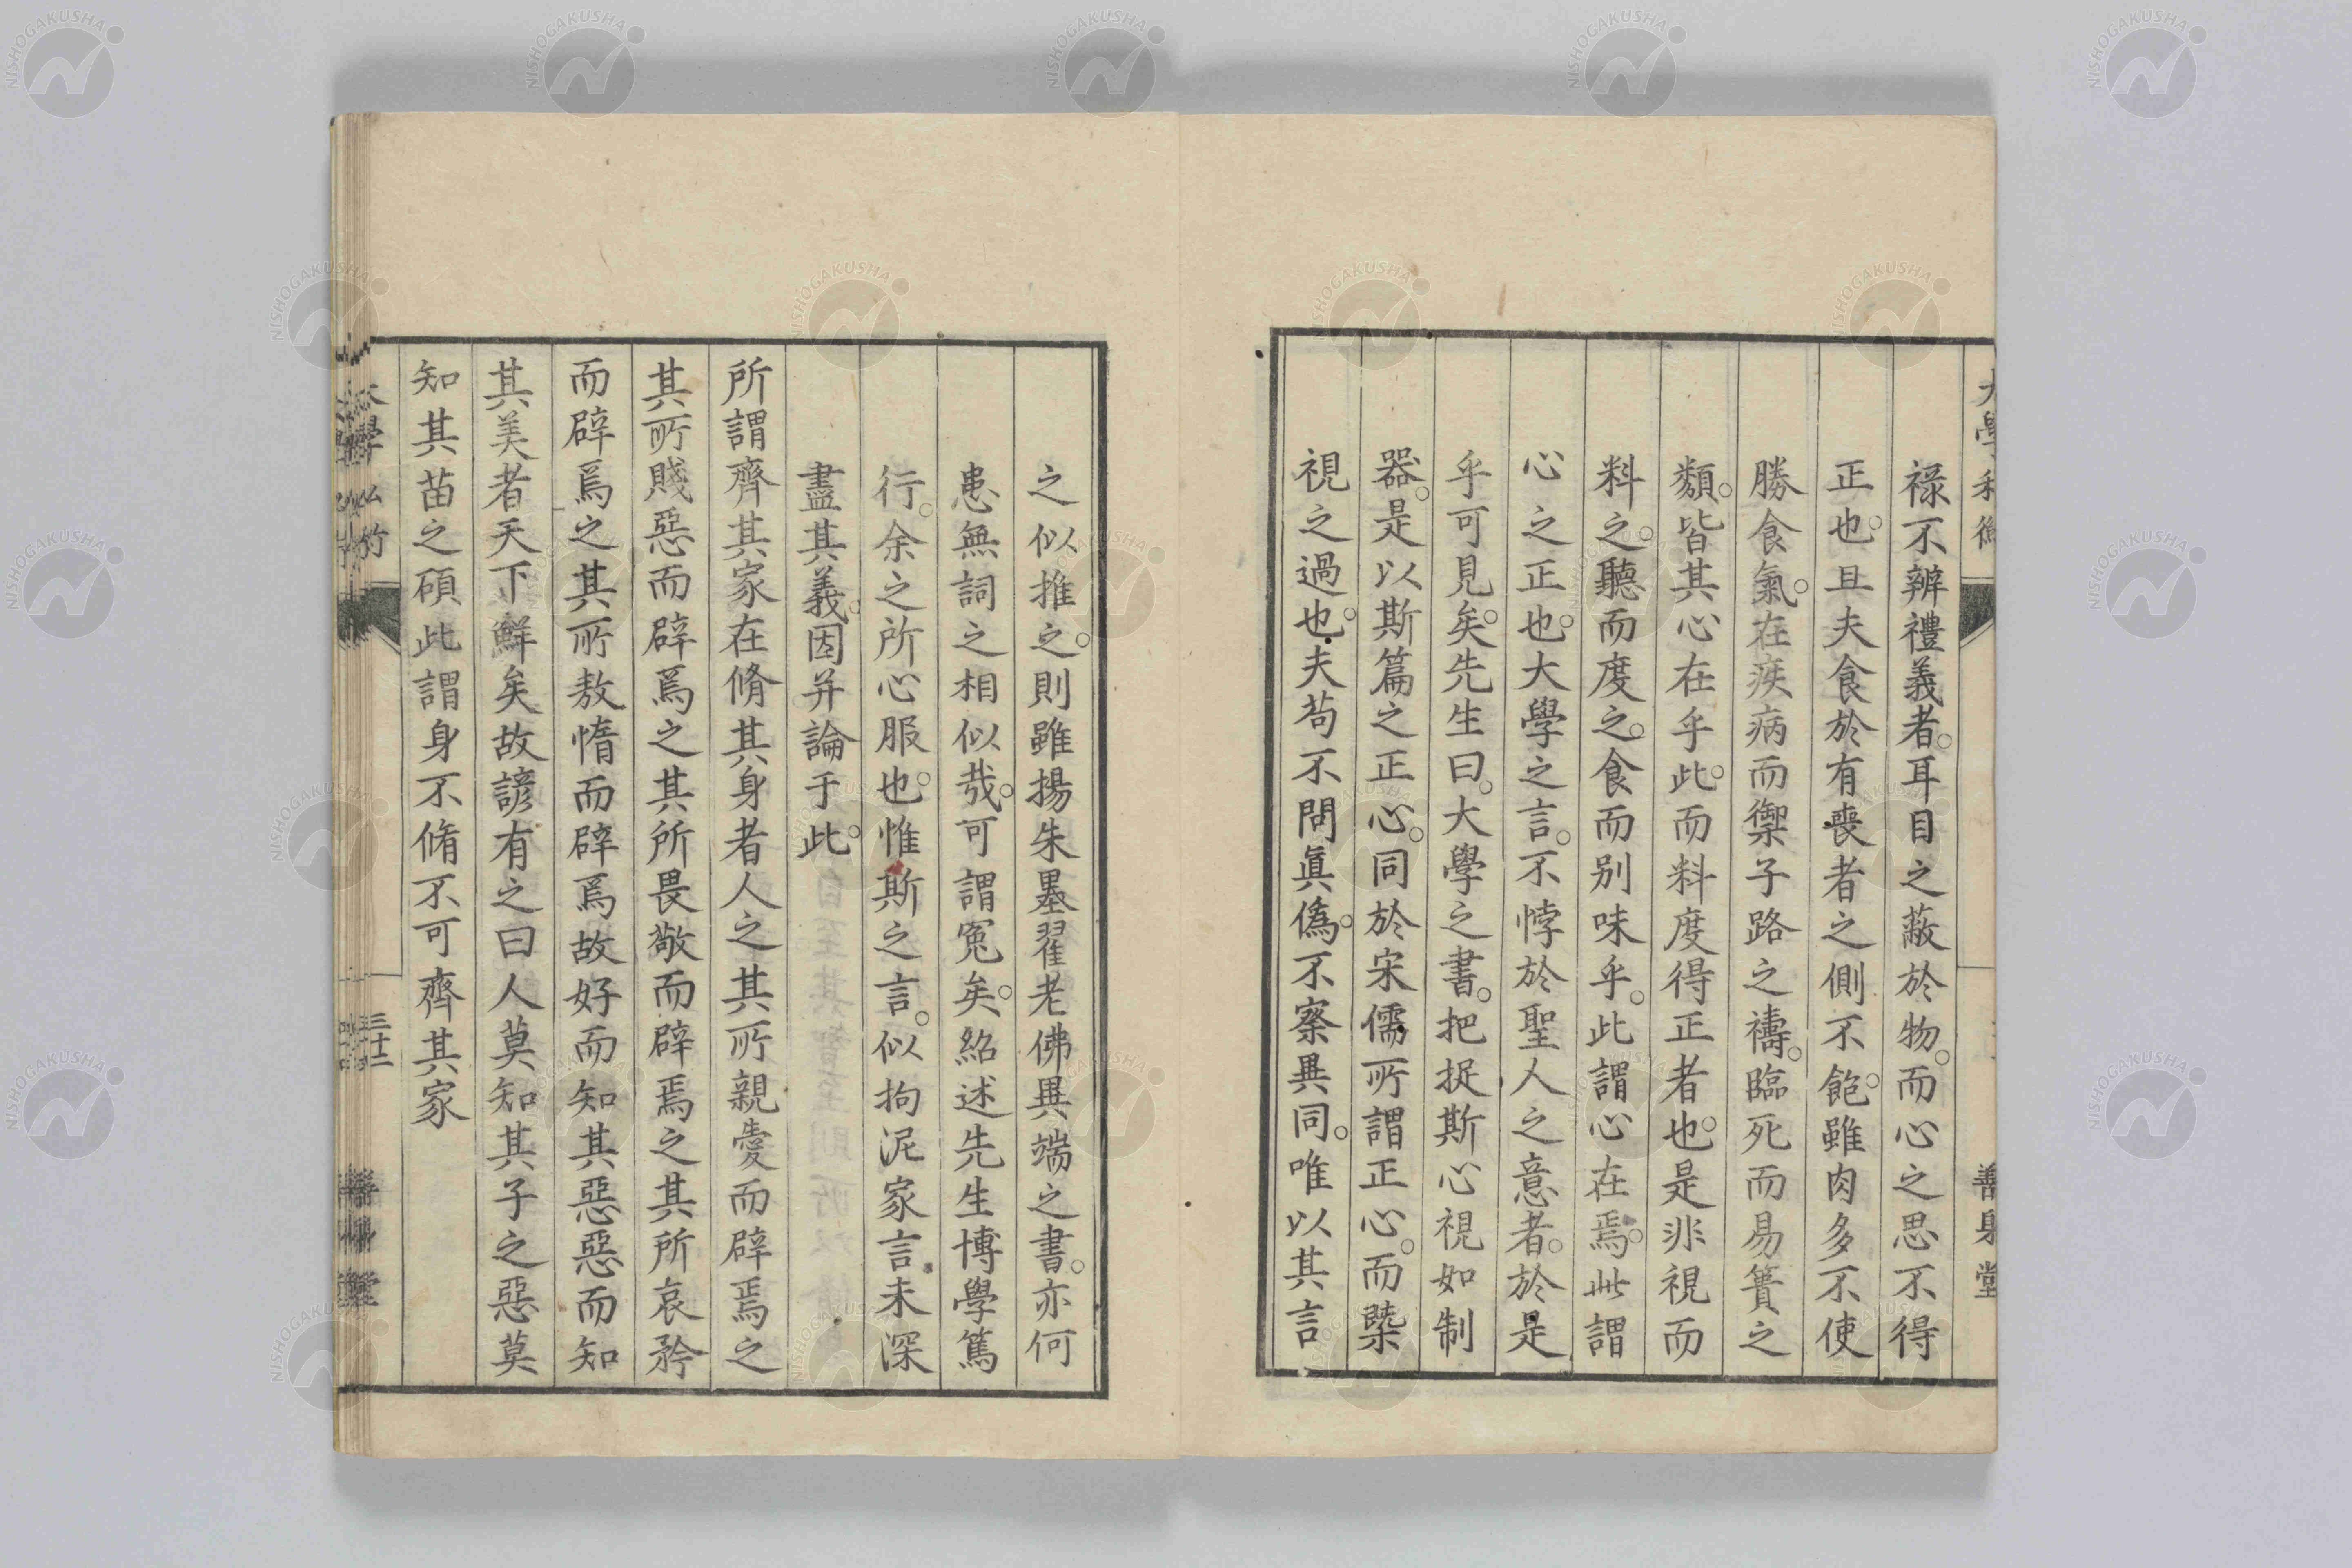 祿不辨禮義者。耳目之蔽於物。而心之思不得
正也。且夫食於有喪者之側不飽。雖肉多不使
勝食氣。在疾病而禦子路之禱。臨死而易簀之
類。皆其心在乎此。而料度得正者也。是非視而
料之。聽而度之。食而別味乎。此謂心在焉。此謂
心之正也。大學之言。不悖於聖人之意者。於是
乎可見矣。先生曰。大學之書。把捉斯心視如制
器。是以斯篇之正心。同於宋儒所謂正心。而槩
視之過也。夫苟不問眞僞。不察異同。唯以其言
之似推之。則雖揚朱墨翟老佛異端之書。亦何
患無詞之相似哉。可謂寃矣。紹述先生博學篤
行。余之所心服也。惟斯之言。似拘泥家言未深
盡其義。因并論于此。
所謂齊其家在脩其身者人之其所親愛而辟焉之
其所賤惡而辟焉之其所畏敬而辟焉之其所哀矜
而辟焉之其所敖惰而辟焉故好而知其惡惡而知
其美者天下鮮矣故諺有之曰人莫知其子之惡莫
知其苗之碩此謂身不脩不可齊其家
三十二
善身堂
NISHOGAKUSHA